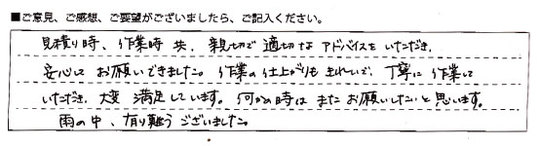 ■ご意見、ご感想、ご要望がございましたら、ご記入ください。
見積り時、作業時 共、親切で 適切な アドバイスを いただき、
安心して お願いできました。作業の仕上がりも きれいで、丁寧に 作業して
いただき、大変 満足しています。何かの時は またお願いしたいと 思います。
雨の中、有り難う ございました。